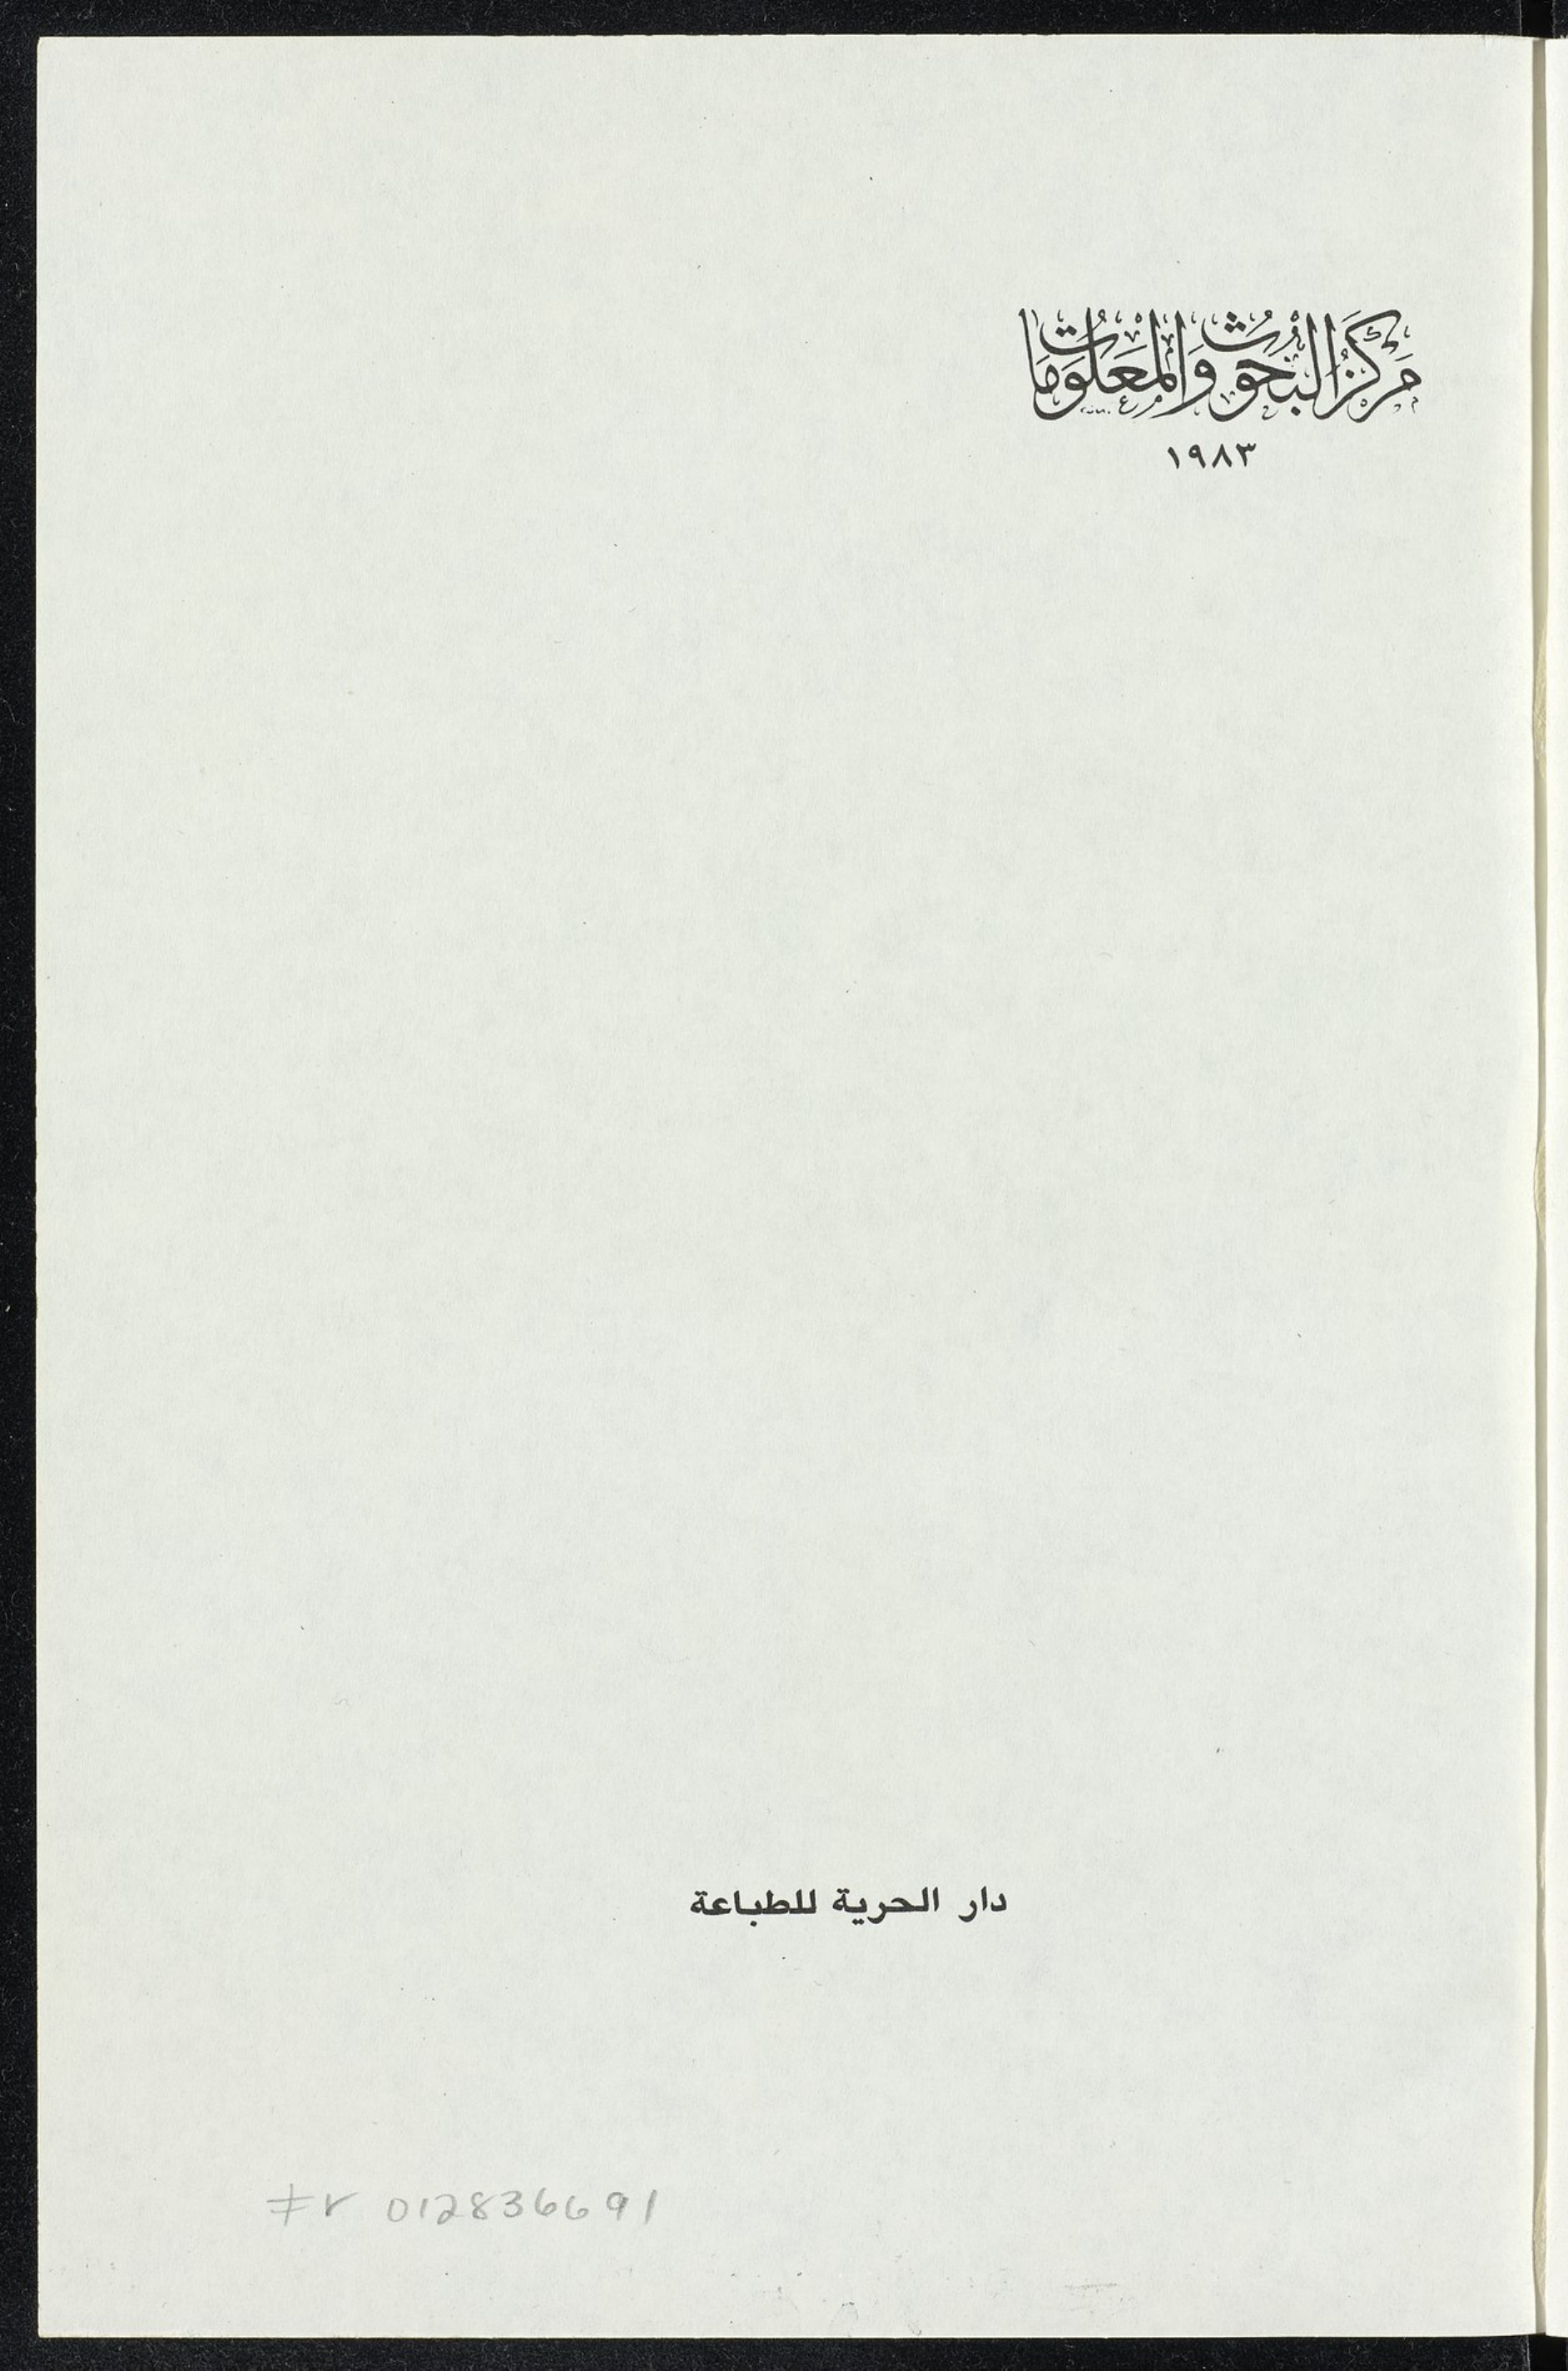 مَركَزُ البُحوُثِ وَالمَعلوُمَات
١٩٨٣
دار الحرية للطباعة
012836691